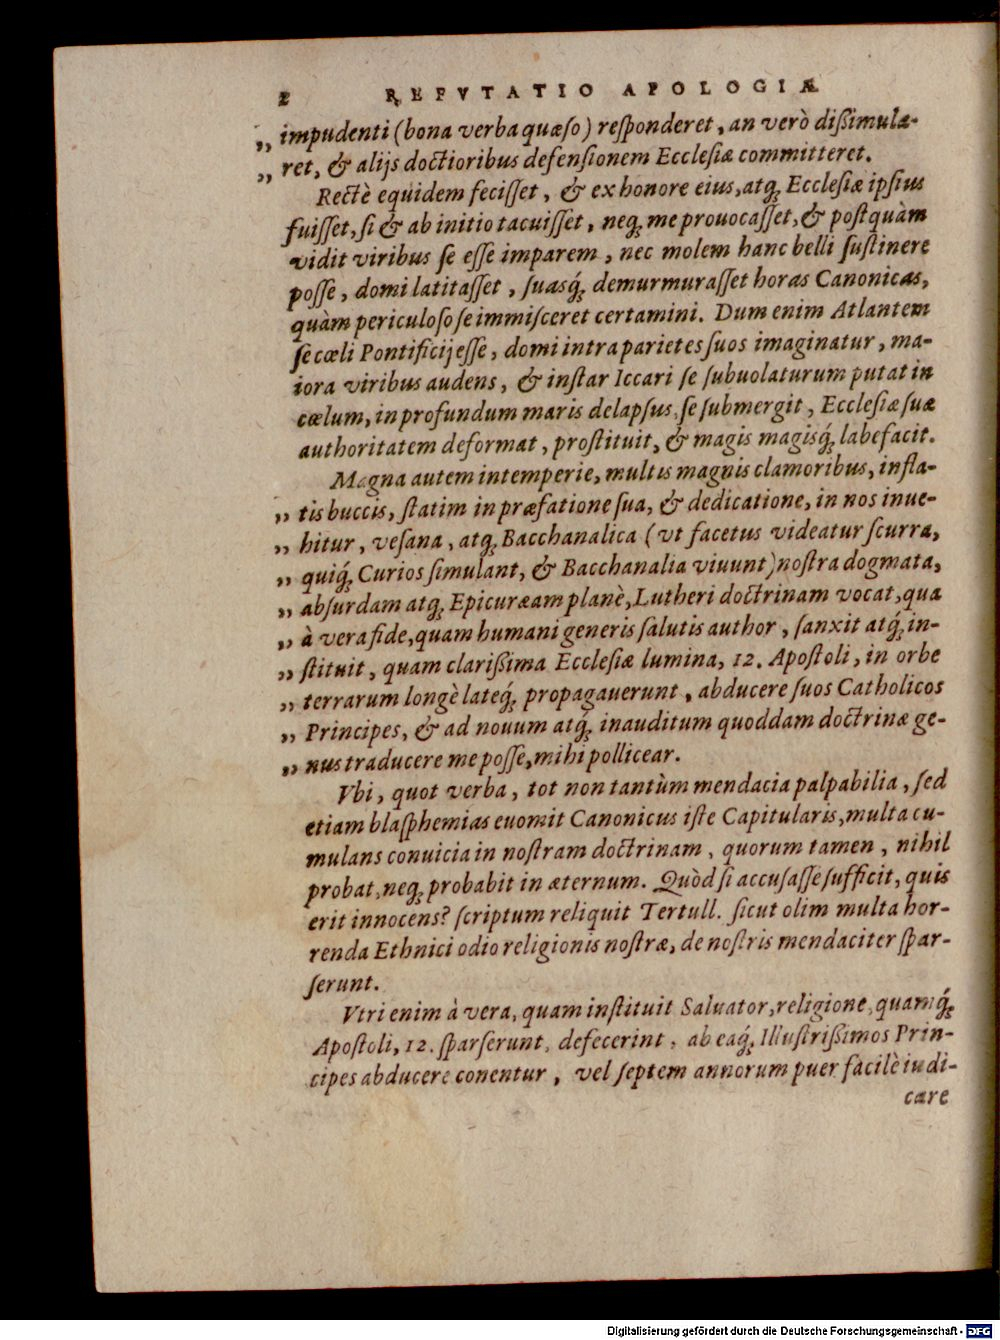 2 REFVTATIO APOLOGIÆ
„ impudenti (bona verba quæso) responderet, an verò dißimula-
„ ret, & alijs doctioribus defensionem Ecclesiæ committeret.
Rectè equidem fecisset, & ex honore eius, atq; Ecclesiæ ipsius
fuisset, si & ab initio tacuisset, neq; me prouocasset, & postquàm
vidit viribus se esse imparem, nec molem hanc belli sustinere
posse, domi latitasset, suasq́; demurmurasset horas Canonicas,
quàm periculoso se immisceret certamini. Dum enim Atlantem
se cœli Pontificij esse, domi intra parietes suos imaginatur, ma-
iora viribus audens, & instar Iccari se subuolaturum putat in
cœlum, in profundum maris delapsus, se submergit, Ecclesiæ suæ
authoritatem deformat, prostituit, & magis magisq́; labefacit.
Magna autem intemperie, multis magnis clamoribus, infla-
„ tis buccis, statim in præfatione sua, & dedicatione, in nos inue-
„ hitur, vesana, atq; Bacchanalica (vt facetus videatur scurra,
„ quiq́; Curios simulant, & Bacchanalia viuunt) nostra dogmata,
„ absurdam atq; Epicuræam planè, Lutheri doctrinam vocat, qua
„ à vera fide, quam humani generis salutis author, sanxit atq́; in-
„ stituit, quam clarißima Ecclesiæ lumina, 12. Apostoli, in orbe
„ terrarum longè lateq́; propagauerunt, abducere suos Catholicos
„ Principes, & ad nouum atq́; inauditum quoddam doctrinæ ge-
„ nus traducere me posse, mihi pollicear.
Vbi, quot verba, tot non tantùm mendacia palpabilia, sed
etiam blasphemias euomit Canonicus iste Capitularis, multa cu-
mulans conuicia in nostram doctrinam, quorum tamen, nihil
probat, neq; probabit in æternum. Quòd si accusasse sufficit, quis
erit innocens? scriptum reliquit Tertull. sicut olim multa hor-
renda Ethnici odio religionis nostræ, de nostris mendaciter spar-
serunt.
Vtri enim à vera, quam instituit Saluator, religione, quamq́;
Apostoli, 12. sparserunt, defecerint, ab eaq́; Illustrißimos Prin-
cipes abducere conentur, vel septem annorum puer facilè iudi-
care
Digitalisierung gefördert durch die Deutsche Forschungsgemeinschaft - DFG